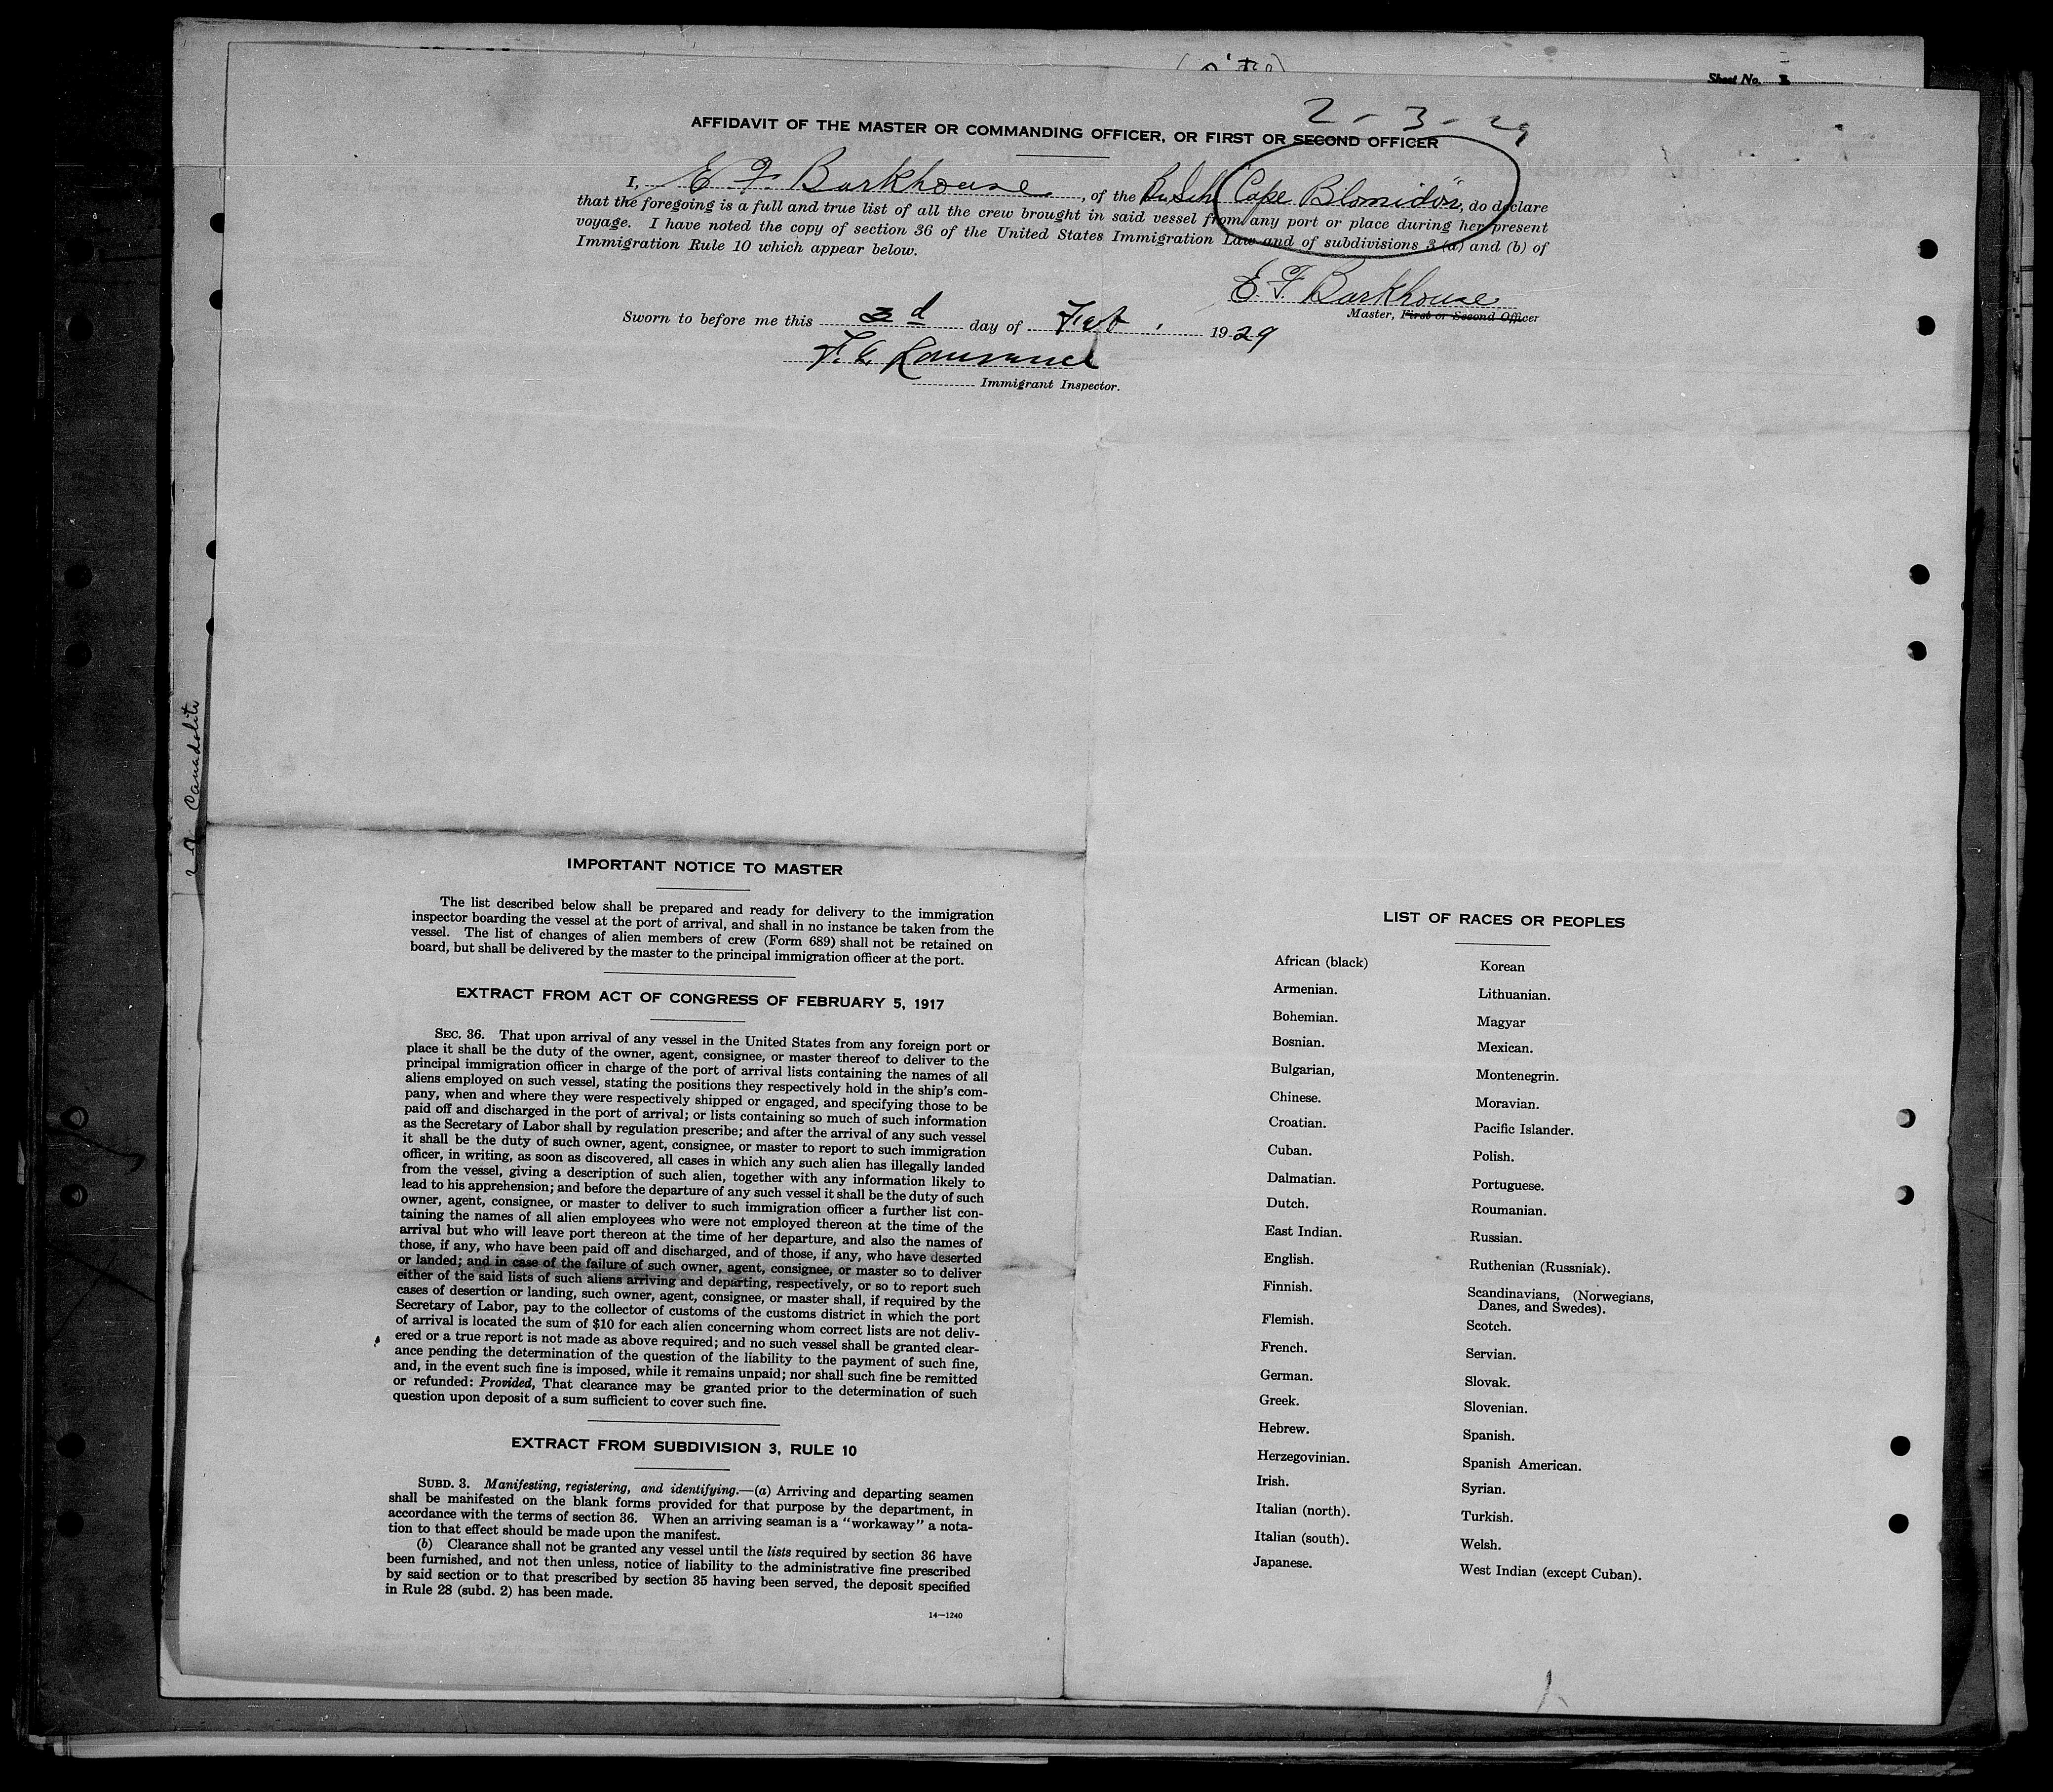 Sheet No. 1
2 - 3 - 29
AFFIDAVIT OF THE MASTER OR COMMANDING OFFICER, OR FIRST OR SECOND OFFICER
I, E F. Barkhouse, of the Br. Sch "Cape Blomidon", do declare
that the foregoing is a full and true list of all the crew brought in said vessel from any port or place during her present
voyage. I have noted the copy of section 36 of the United States Immigration Law and of subdivisions 3 (a) and (b) of
Immigration Rule 10 which appear below.
E. F. Barkhouse
Master, First or Second Officer
Sworn to before me this 3d day of Feb, 1929
Immigrant Inspector.
IMPORTANT NOTICE TO MASTER
The list described below shall be prepared and ready for delivery to the immigration
inspector boarding the vessel at the port of arrival, and shall in no instance be taken from the
vessel. The list of changes of alien members of crew (Form 689) shall not be retained on
board, but shall be delivered by the master to the principal immigration officer at the port.
EXTRACT FROM ACT OF CONGRESS OF FEBRUARY 5, 1917
SEC. 36. That upon arrival of any vessel in the United States from any foreign port or
place it shall be the duty of the owner, agent, consignee, or master thereof to deliver to the
principal immigration officer in charge of the port of arrival lists containing the names of all
aliens employed on such vessel, stating the positions they respectively hold in the ship's com-
pany, when and where they were respectively shipped or engaged, and specifying those to be
paid off and discharged in the port of arrival; or lists containing so much of such information
as the Secretary of Labor shall by regulation prescribe; and after the arrival of any such vessel
it shall be the duty of such owner, agent, consignee, or master to report to such immigration
officer, in writing, as soon as discovered, all cases in which any such alien has illegally landed
from the vessel, giving a description of such alien, together with any information likely to
lead to his apprehension; and before the departure of any such vessel it shall be the duty of such
owner, agent, consignee, or master to deliver to such immigration officer a further list con-
taining the names of all alien employees who were not employed thereon at the time of the
arrival but who will leave port thereon at the time of her departure, and also the names of
those, if any, who have been paid off and discharged, and of those, if any, who have deserted
or landed; and in case of the failure of such owner, agent, consignee, or master so to deliver
either of the said lists of such aliens arriving and departing, respectively, or so to report such
cases of desertion or landing, such owner, agent, consignee, or master shall, if required by the
Secretary of Labor, pay to the collector of customs of the customs district in which the port
of arrival is located the sum of $10 for each alien concerning whom correct lists are not deliv-
ered or a true report is not made as above required; and no such vessel shall be granted clear-
ance pending the determination of the question of the liability to the payment of such fine,
and, in the event such fine is imposed, while it remains unpaid; nor shall such fine be remitted
or refunded: Provided, That clearance may be granted prior to the determination of such
question upon deposit of a sum sufficient to cover such fine.
EXTRACT FROM SUBDIVISION 3, RULE 10
SUBD. 3. Manifesting, registering, and identifying.—(a) Arriving and departing seamen
shall be manifested on the blank forms provided for that purpose by the department, in
accordance with the terms of section 36. When an arriving seaman is a "workaway" a nota-
tion to that effect should be made upon the manifest.
(b) Clearance shall not be granted any vessel until the lists required by section 36 have
been furnished, and not then unless, notice of liability to the administrative fine prescribed
by said section or to that prescribed by section 35 having been served, the deposit specified
in Rule 28 (subd. 2) has been made.
14—1240
LIST OF RACES OR PEOPLES
African (black)
Armenian.
Bohemian.
Bosnian.
Bulgarian,
Chinese.
Croatian.
Cuban.
Dalmatian.
Dutch.
East Indian.
English.
Finnish.
Flemish.
French.
German.
Greek.
Hebrew.
Herzegovinian.
Irish.
Italian (north).
Italian (south).
Japanese.
Korean
Lithuanian.
Magyar
Mexican.
Montenegrin.
Moravian.
Pacific Islander.
Polish.
Portuguese.
Roumanian.
Russian.
Ruthenian (Russniak).
Scandinavians, (Norwegians,
Danes, and Swedes).
Scotch.
Servian.
Slovak.
Slovenian.
Spanish.
Spanish American.
Syrian.
Turkish.
Welsh.
West Indian (except Cuban).